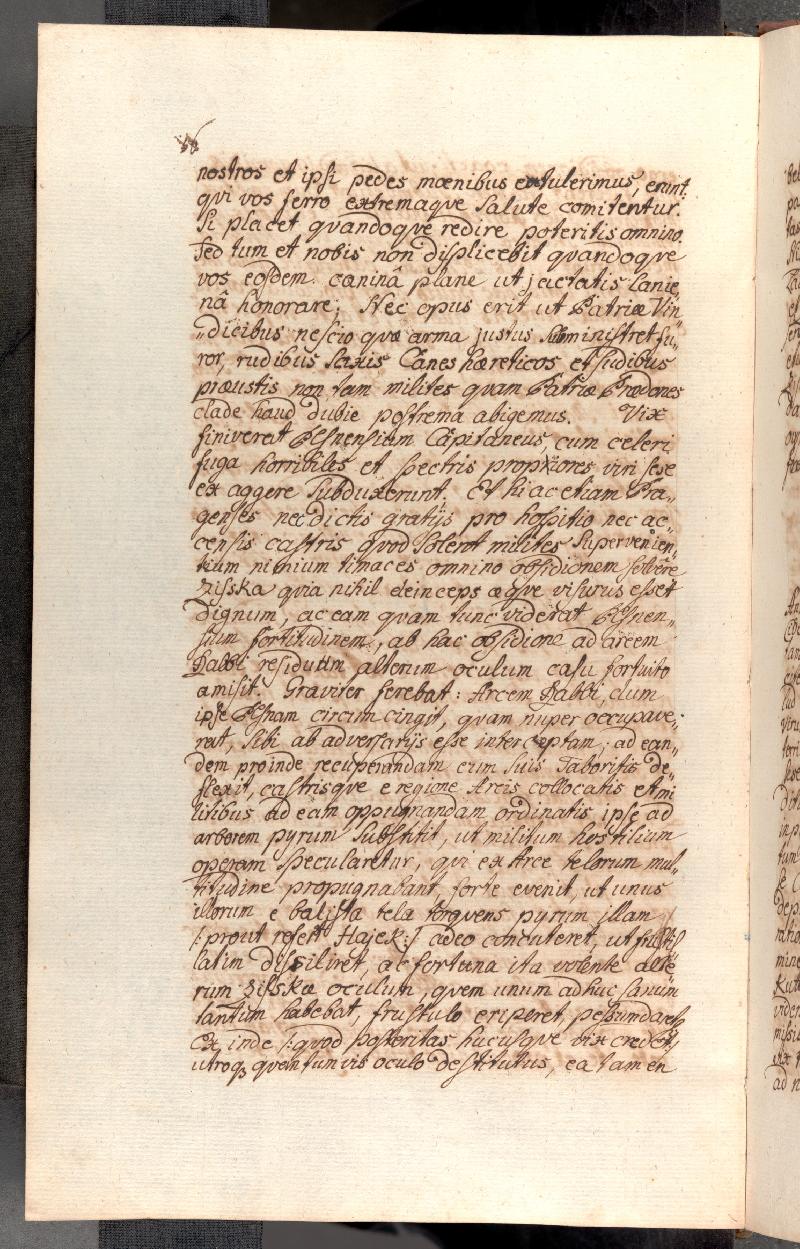 nostros et ipsi pedes mœnibus extulerimus, erunt
qvi vos ferro extremaqve salute comitentur.
Si placet qvandoqve redire poteritis omnino.
Sed tum et nobis non displicebit qvandoqve
vos eosdem caninâ plane ut jactatis lanie
nâ honorare; Nec opus erit ut Patriæ Vin
„dicibus nescio qvæ arma justus subministret fu„
ror, rudibus saxis Canes hæreticos et sudibus
præustis non tam milites qvam Patriæ Prædones
clade haud dubie postrema abigemus. Vix
finiverat Pilsnensium Capitaneus, cum celeri
fuga horribiles et spectris propiores viri sese
ex aggere subduxerunt. Et hi ac etiam Pra„
genses nec dictis gratijs pro hospitio nec ac„
censis castris qvod solent milites supervenien„
tium nimium timaces omnino obsidionem solvêre
Zisska qvia nihil deinceps æqve visurus esset
dignum, ac eam qvam tunc viderat Pilsnen„
sium fortitudinem, ab hac obsidione ad arcem
Rabbi residuum alterum oculum casu fortuito
amisit. Graviter ferebat: Arcem Rabbi, dum
ipse Pilsnam circumcingit, qvam nuper occupave„
rat, sibi ab adversarijs esse interceptam; ad ean„
dem proinde recuperandam cum suis Taboritis de„
flexit, castrisqve e regione Arcis collocatis et mi
litibus ad eam oppugnandam ordinatis ipse ad
arborem pyrum substitit, ut militum hostilium
operam specularetur, qvi ex Arce telorum mul„
titudine propugnabant, forte evenit, ut unus
illorum e balista tela torqvens pyrum illam
/: prout refert Hajek :/ adeo concuteret, ut frusti
latim dissiliret, ac fortuna ita volente alte
rum Zisskæ oculum, qvem unum adhuc sanum
tantum habebat, frustulo eriperet,
Ex inde /: qvod posteritas hucusqve vix
utroqꝫ qvantumvis oculo destitutus, ea tamen